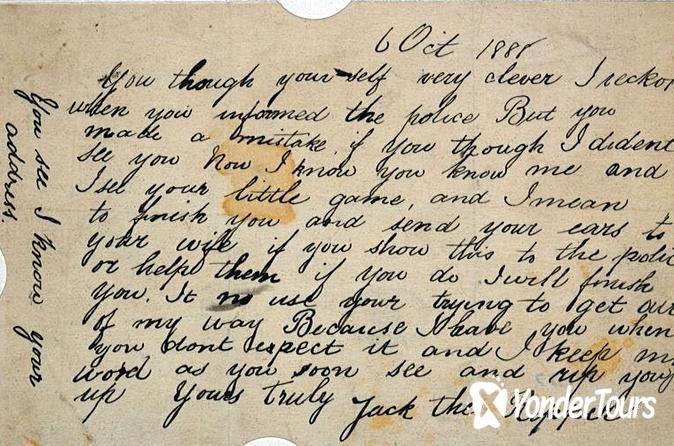 6 Oct 1888
You though your self very clever I reckon
when you informed the police But you
made a mistake if you though I dident
see you Now I know you know me and
I see your little game, and I mean
to finish you and send your ears to
your wife if you show this to the polic
or help them if you do I will finish
you. It no use your trying to get out
of my way Because I have you when
you dont expect it and I keep my
word as you soon see and rip you
up Yours truly Jack the Ripper
You see I know your
address.
YonderTours